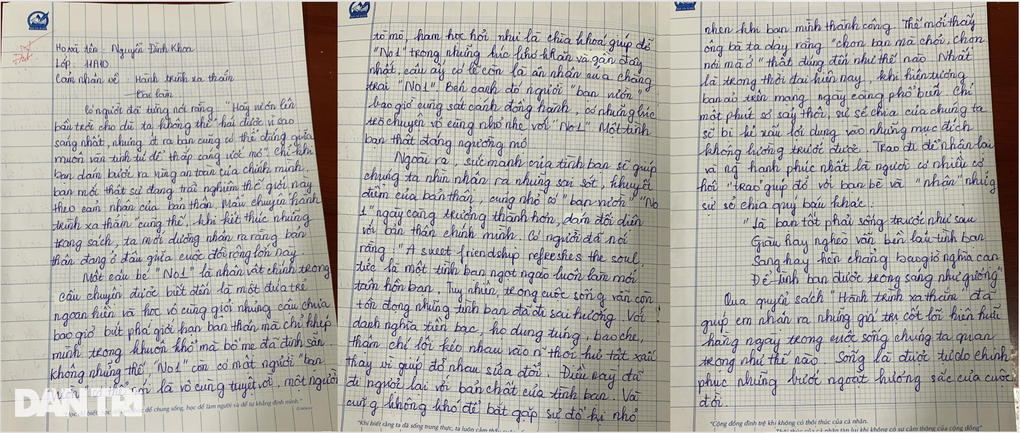 Họ và tên: Nguyễn Đình Khoa
Lớp: 11A10
Cảm nhận về: Hành trình xa thẳm
Bài làm
Có người đã từng nói rằng: "Hãy vươn lên
bầu trời cho dù ta không thể hái được vì sao
sáng nhất, nhưng ít ra bạn cũng có thể đứng giữa
muôn vàn tinh tú để thắp sáng ước mơ". Chỉ khi
bạn dám bước ra vùng an toàn của chính mình,
bạn mới thật sự đang trải nghiệm thế giới này
theo cảm nhận của bản thân. Mẩu chuyện "hành
trình xa thẳm" cũng thế, khi kết thúc những
trang sách, ta mới dường nhận ra rằng bản
thân đang ở đâu giữa cuộc đời rộng lớn này
Một cậu bé "No1" là nhân vật chính trong
câu chuyện được biết đến là một đứa trẻ
ngoan hiền và học vô cùng giỏi nhưng cậu chưa
bao giờ bứt phá giới hạn bản thân mà chỉ khép
mình trong khuôn khổ mà bố mẹ đã định sẵn
không những thế, "No1" còn có một người "bạn
là vô cùng tuyệt vời, một người
DÂN TRÍ
tò mò, ham học hỏi như là chìa khoá giúp đỡ
"No1" trong những lúc khó khăn và gần đây
nhất, cậu ấy có lẽ còn là ân nhân của chàng
trai "No1". Bên cạnh đó người "bạn vườn"
bao giờ cũng sát cánh đồng hành, có những lúc
trò chuyện vô cùng nhỏ nhẹ với "No1". Một tình
bạn thật đáng ngưỡng mộ
Ngoài ra, sức mạnh của tình bạn sẽ giúp
chúng ta nhìn nhận ra những sai sót, khuyết
điểm của bản thân, cũng nhờ có "bạn vườn" "No
1" ngày càng trưởng thành hơn, dám đối diện
với bản thân chính mình. Có người đã nói
rằng: "A sweet friendship refreshes the soul
tức là một tình bạn ngọt ngào luôn làm mới
tâm hồn bạn. Tuy nhiên, trong cuộc sống vẫn còn
tồn đọng những tình bạn đã đi sai hướng. Với
danh nghĩa tiền bạc, họ dung túng, bao che,
thậm chí lôi kéo nhau vào thói hư tật xấu
thay vì giúp đỡ nhau sửa đổi. Điều này đã
đi ngược lại với bản chất của tình bạn. Và
cũng không khó để bắt gặp sự đố kị nhỏ
"Khi biết rằng ta đã sống trung thực, ta luôn cảm thấy
nhen khi bạn mình thành công. Thế mới thấy
ông bà ta dạy rằng "chọn bạn mà chơi, chọn
nơi mà ở" thật đúng đến như thế nào. Nhất
là trong thời đại hiện nay, khi hiện tượng
bạn ảo trên mạng ngày càng phổ biến. Chỉ
một phút sơ sẩy thôi, sự sẻ chia của chúng ta
sẽ bị kẻ xấu lợi dụng vào những mục đích
không lường trước được. Trao đi để nhận lại
và ng hạnh phúc nhất là người có nhiều cơ
hội "trao" giúp đỡ với bạn bè và "nhận" những
sự sẻ chia quý báu khác.
"Là bạn tốt phải sống trước như sau
Giàu hay nghèo vẫn bền lâu tình bạn
Sang hay hèn chẳng bao giờ nghĩa cạn
Để tình bạn được trong sáng như gương"
Qua quyển sách "Hành trình xa thẳm" đã
giúp em nhận ra những giá trị cốt lõi hiện hữu
hằng ngày trong cuộc sống chúng ta quan
trọng như thế nào. Sống là được tự do chinh
phục những bước ngoặt hương sắc của cuộc
đời.
"Cộng đồng đình trệ khi không có thôi thúc của cá nhân.